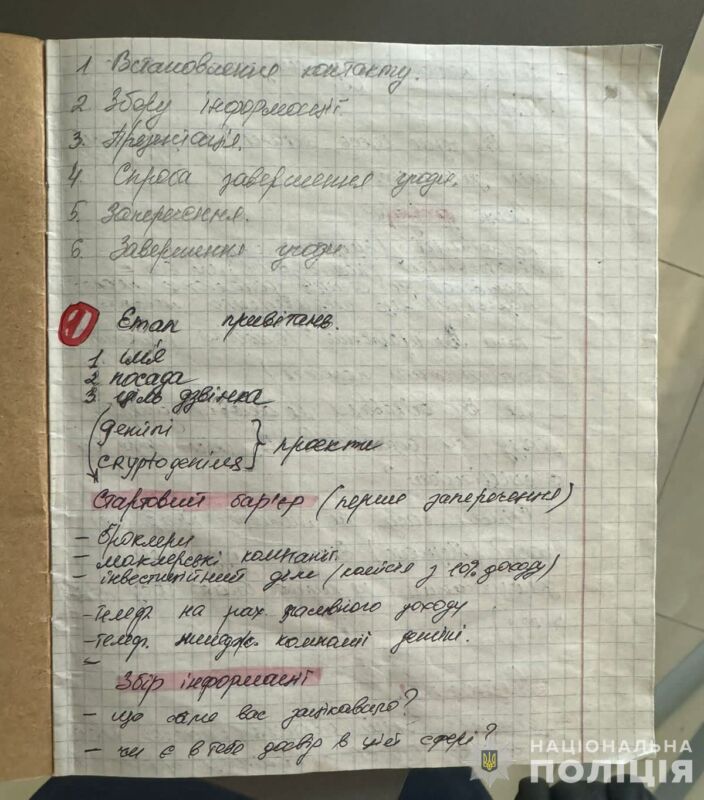 1 Встановлення контакту.
2 Збору інформації
3. Презентація.
4. Спроба завершення угоди.
5. Заперечення.
6. Завершення угоди
1 Етап привітань.
1. ім'я
2. посада
3. ціль дзвінка
проекти
Стартовий бар'єр (перше заперечення)
- брокери
- маклерські компанії
- інвестиційний діли (комісія з 10% доходу)
- телеф. на рах пасивного доходу
- телеф. менедж. компанії
Збір інформації
- що саме вас зацікавило?
- чи є в тебе досвід в цій сфері?
НАЦІОНАЛЬНА
ПОЛІЦІЯ